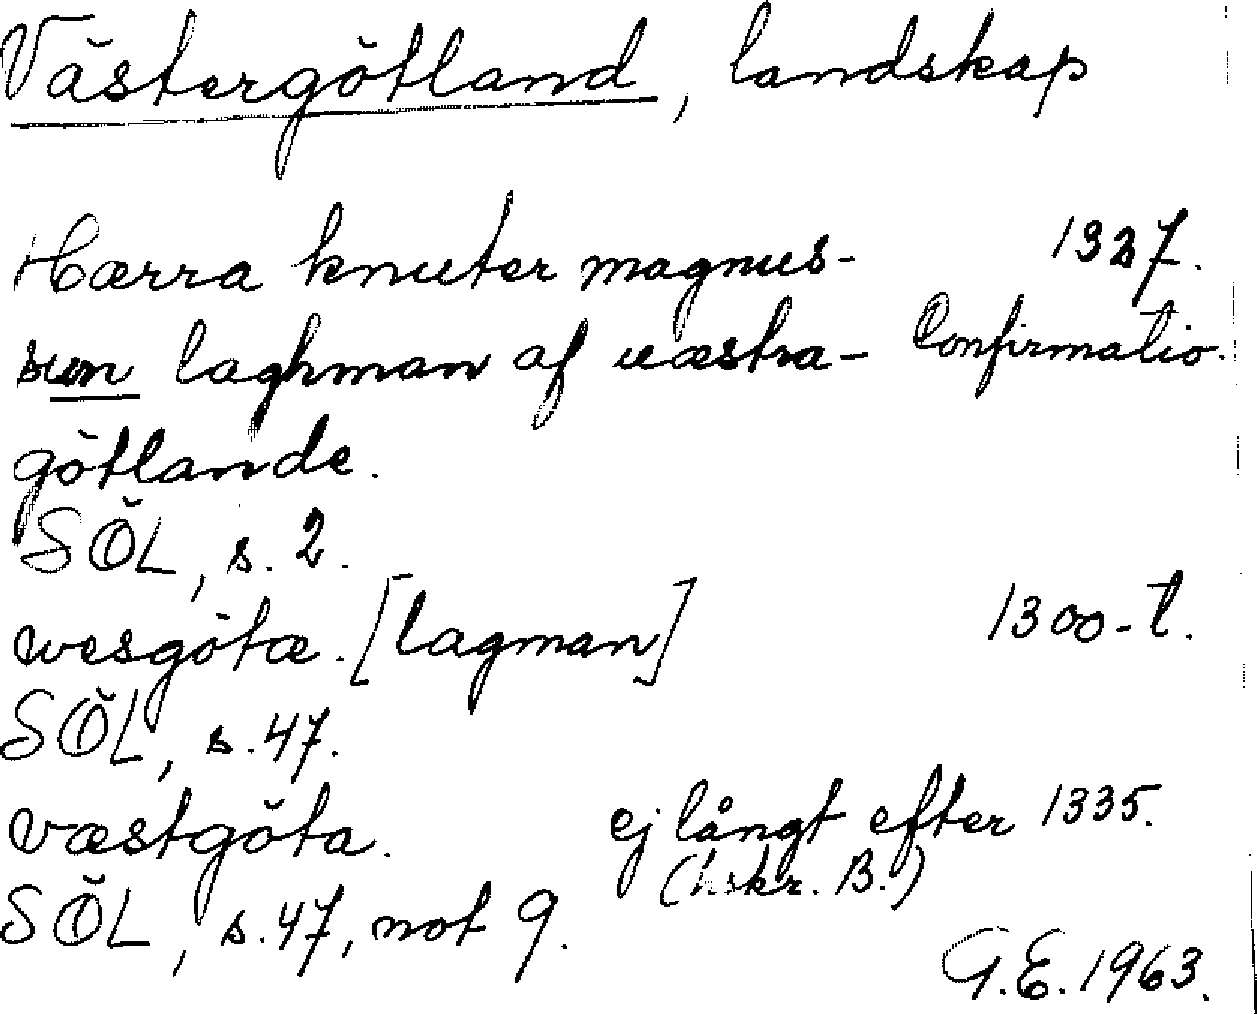 Västergötland, landskap
Hærra knuter magnus- 1327.
sun laghman af uæstra- Confirmatio.
götlande.
SÖL, s. 2.
wesgötæ. [lagman] 1300-t.
SÖL, s. 47.
væstgöta. ej långt efter 1335.
(hskr. B.)
SÖL, s. 47, not 9.
G.E. 1963.